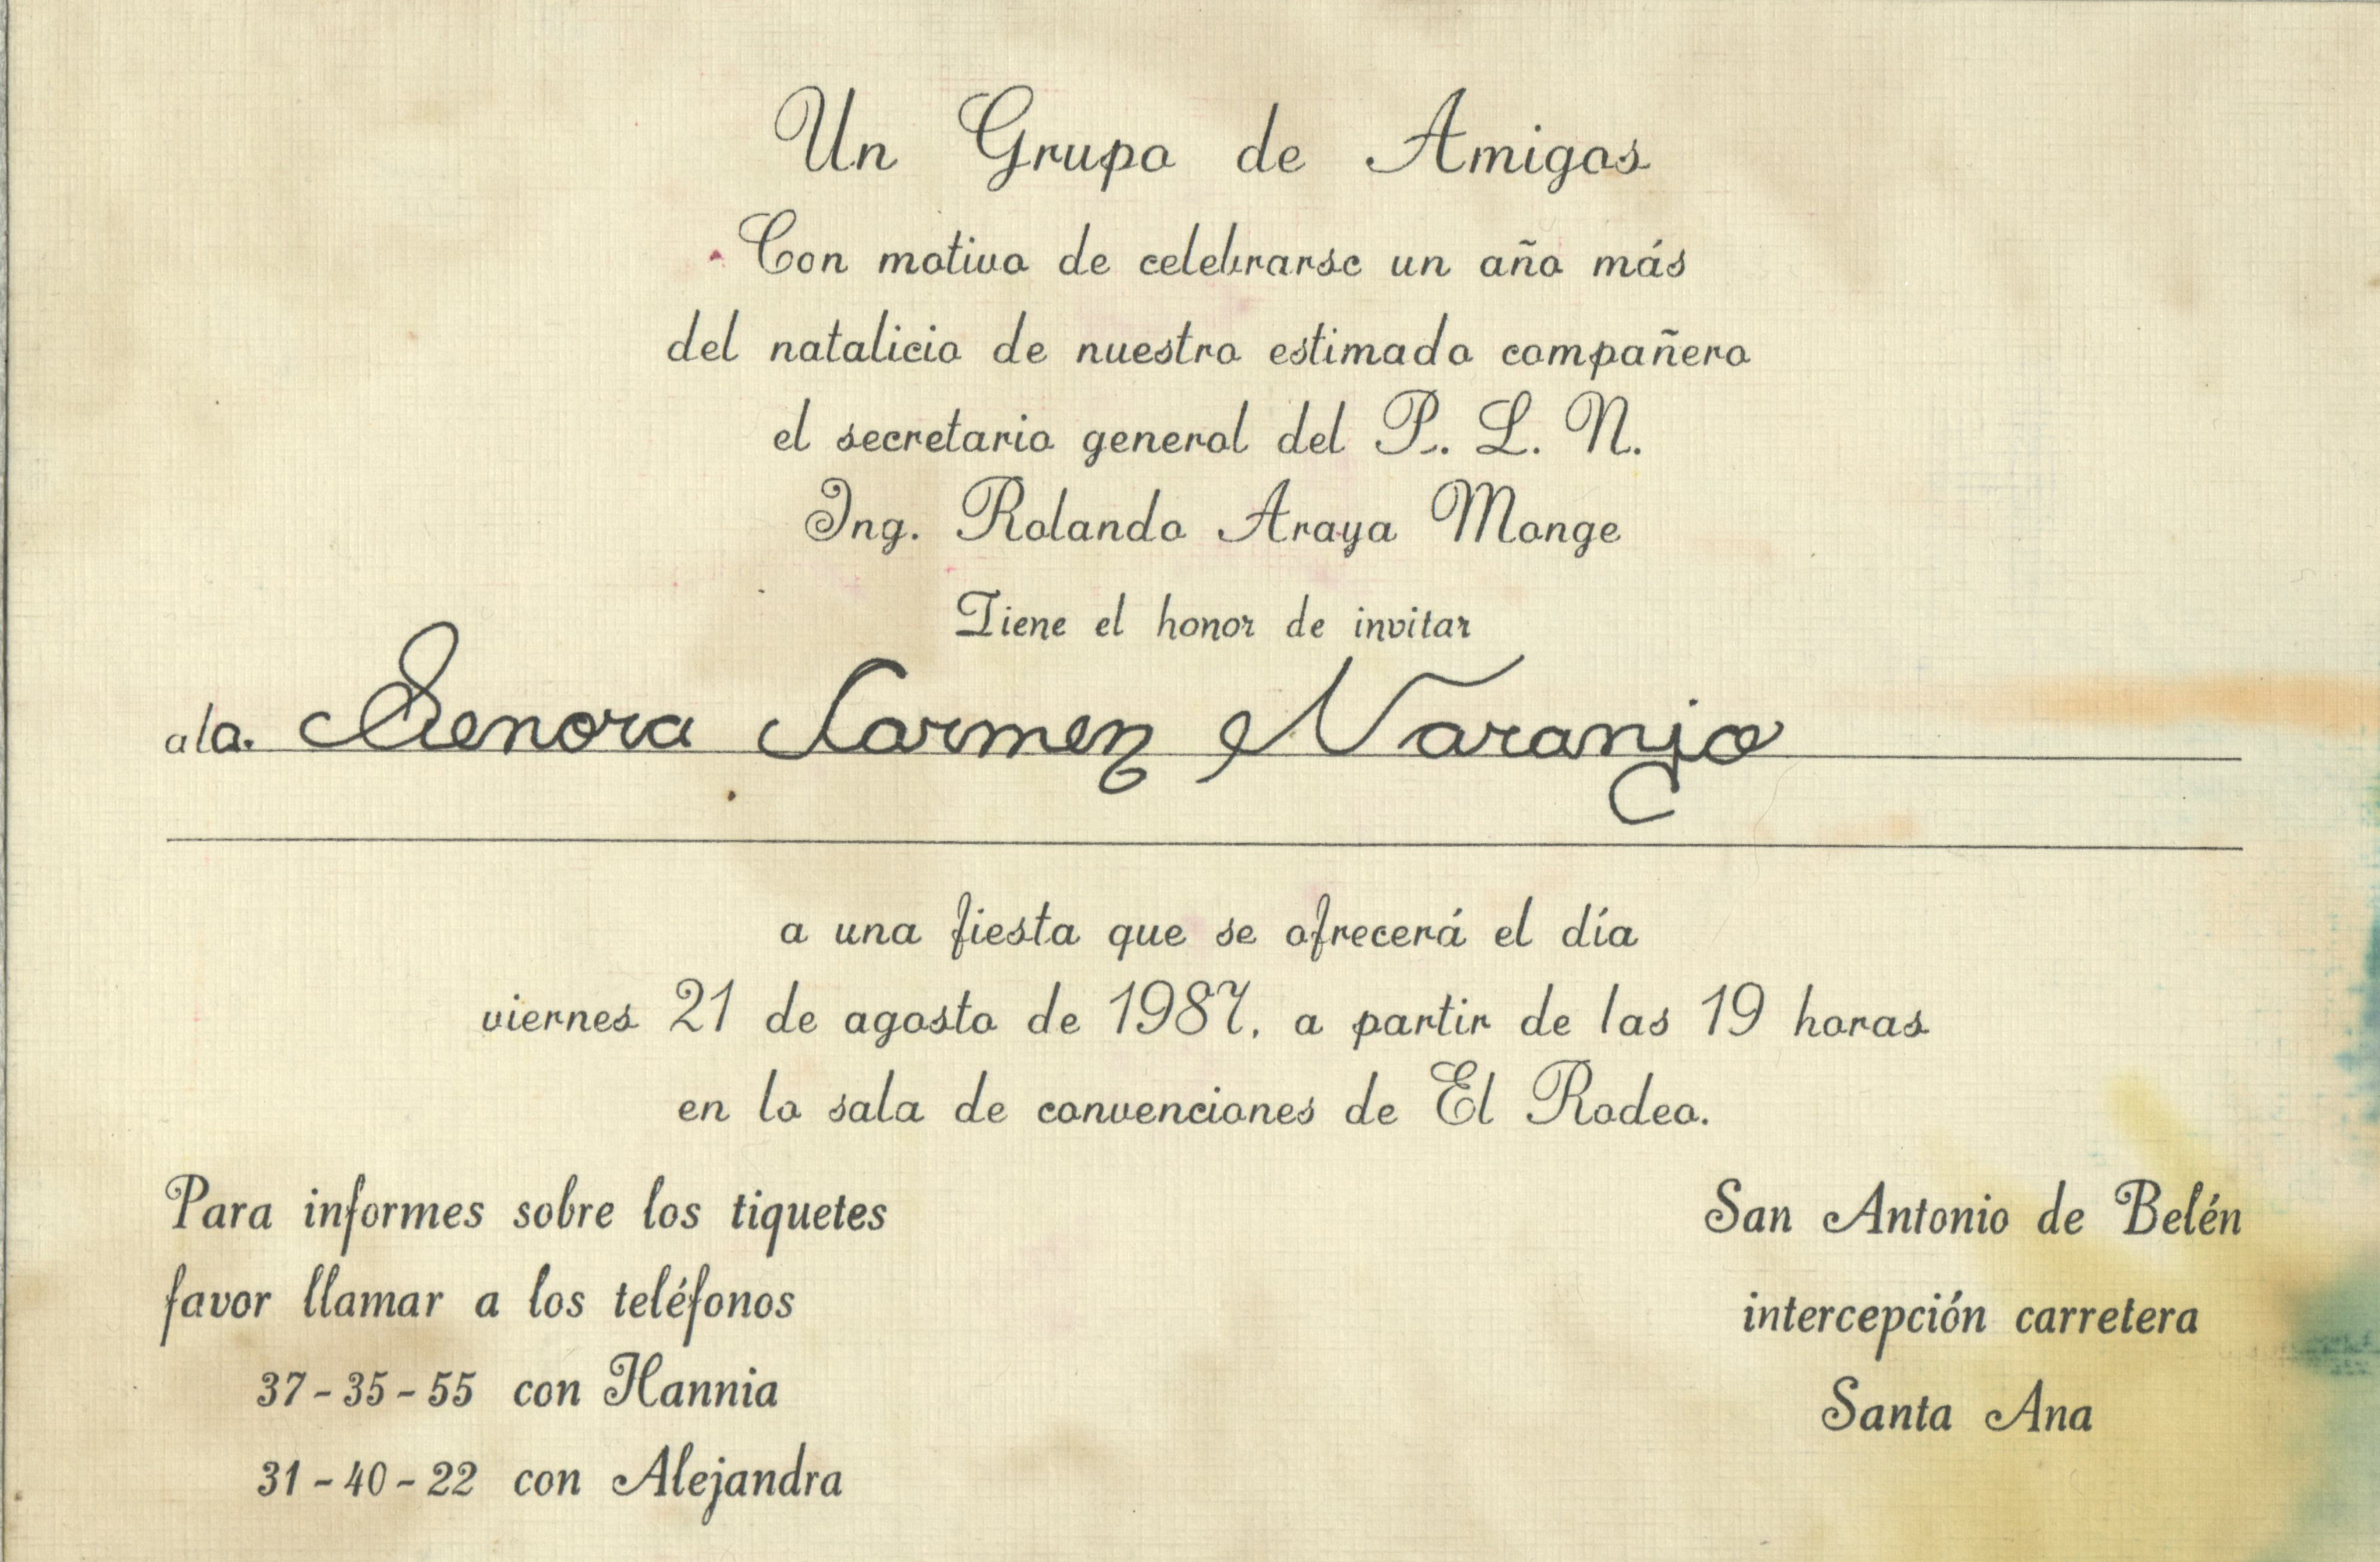 Un Grupo de Amigos
Con motivo de celebrarse un año más
del natalicio de nuestro estimado compañero
el secretario general del P. L. N.
Ing. Rolando Araya Monge
Tiene el honor de invitar
a la. Senora Carmen Naranjo
a una fiesta que se ofrecerá el día
viernes 21 de agosto de 1987, a partir de las 19 horas
en la sala de convenciones de El Rodeo.
Para informes sobre los tiquetes
favor llamar a los teléfonos
37-35-55 con Hannia
31-40-22 con Alejandra
San Antonio de Belén
intercepción carretera
Santa Ana